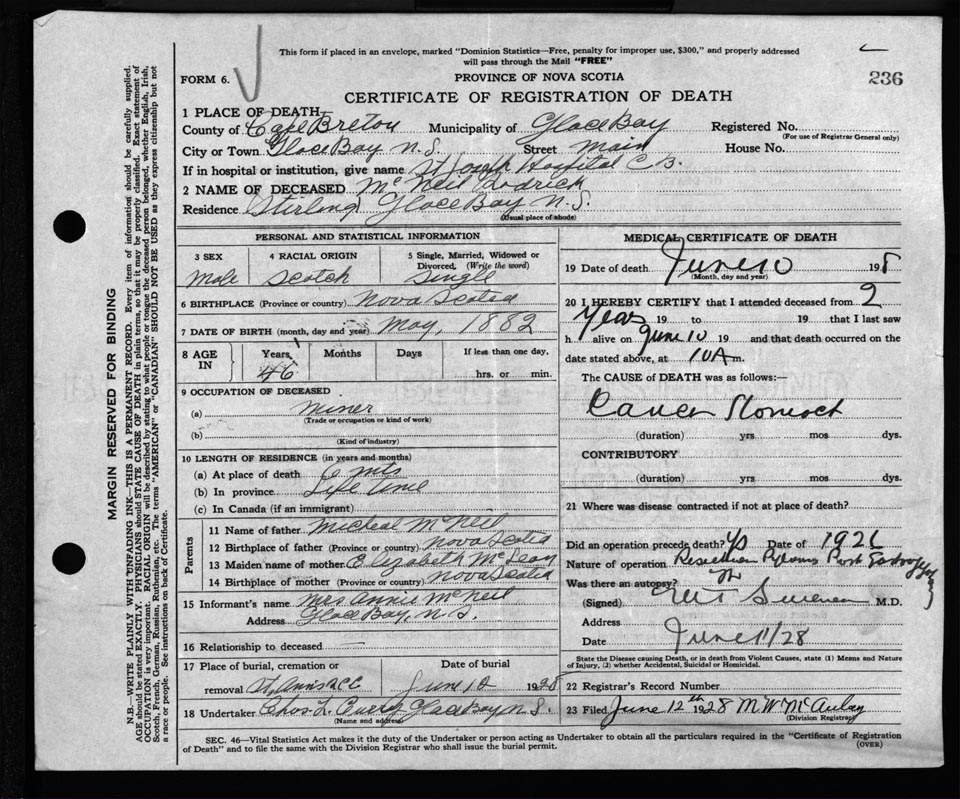 This form if placed in an envelope, marked "Dominion Statistics—Free, penalty for improper use, $300," and properly addressed
will pass through the Mail "FREE"
FORM 6.
PROVINCE OF NOVA SCOTIA
236
CERTIFICATE OF REGISTRATION OF DEATH
1 PLACE OF DEATH
County of Cape Breton Municipality of Glace Bay Registered No.
(For use of Registrar General only)
City or Town Glace Bay N.S. Street Main House No.
If in hospital or institution, give name St Joseph Hospital C B.
2 NAME OF DECEASED McNeil Rodrick
Residence Stirling Glace Bay N.S.
(Usual place of abode)
PERSONAL AND STATISTICAL INFORMATION
3 SEX 4 RACIAL ORIGIN 5 Single, Married, Widowed or
Divorced, (Write the word)
Male Scotch Single
6 BIRTHPLACE (Province or country) Nova Scotia
7 DATE OF BIRTH (month, day and year) May, 1882
8 AGE IN Years Months Days If less than one day,
46 hrs. or min.
9 OCCUPATION OF DECEASED
(a) Miner
(Trade or occupation or kind of work)
(b)
(Kind of industry)
10 LENGTH OF RESIDENCE (in years and months)
(a) At place of death 6 mts
(b) In province Life time
(c) In Canada (if an immigrant)
Parents
11 Name of father Micheal McNeil
12 Birthplace of father (Province or country) Nova Scotia
13 Maiden name of mother Elizabeth McLean
14 Birthplace of mother (Province or country) Nova Scotia
15 Informant's name Mrs Annie McNeil
Address Glace Bay, N.S.
16 Relationship to deceased
17 Place of burial, cremation or Date of burial
removal St. Anns June 12 1928
18 Undertaker Chas. L. Glace Bay N.S.
(Name and address)
MEDICAL CERTIFICATE OF DEATH
19 Date of death June 10 198
(Month, day and year)
20 I HEREBY CERTIFY that I attended deceased from 2
Years 19 to 19 that I last saw
h alive on June 10 19 and that death occurred on the
date stated above, at 10 A m.
The CAUSE of DEATH was as follows:—
Cancer Stomach
(duration) yrs mos dys.
CONTRIBUTORY
(duration) yrs mos dys.
21 Where was disease contracted if not at place of death?
Did an operation precede death? Yes Date of 1926
Nature of operation Resection Pylorus Post
Was there an autopsy? No
(Signed) M.D.
Address
Date June 11/28
State the Disease causing Death, or in death from Violent Causes, state (1) Means and Nature
of Injury, (2) whether Accidental, Suicidal or Homicidal.
22 Registrar's Record Number
23 Filed June 12th 1928 M W McAulay
(Division Registrar)
SEC. 46—Vital Statistics Act makes it the duty of the Undertaker or person acting as Undertaker to obtain all the particulars required in the "Certificate of Registration
of Death" and to file the same with the Division Registrar who shall issue the burial permit.
(OVER)
MARGIN RESERVED FOR BINDING
N.B.—WRITE PLAINLY WITH UNFADING INK—THIS IS A PERMANENT RECORD. Every item of information should be carefully supplied.
AGE should be stated EXACTLY. PHYSICIANS should STATE CAUSE OF DEATH in plain terms, so that it may be properly classified. Exact statement of
OCCUPATION is very important. RACIAL ORIGIN will be described by stating to what people or tongue the deceased person belonged, whether English, Irish,
Scotch, French, German, Russian, Ruthenian, etc. The terms "AMERICAN" or "CANADIAN" SHOULD NOT BE USED as they express citizenship but not
a race or people. See instructions on back of Certificate.